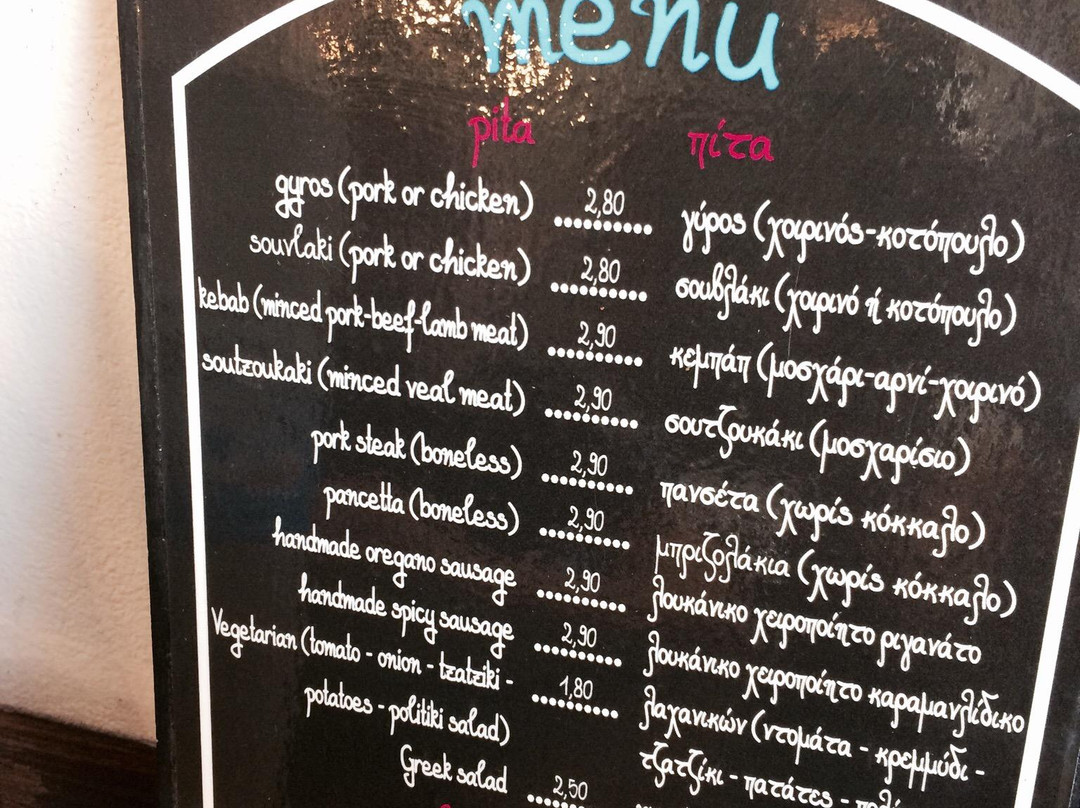 menu
pita πίτα
gyros (pork or chicken) 2,80 γύρος (χοιρινός-κοτόπουλο)
souvlaki (pork or chicken) 2,80 σουβλάκι (χοιρινό ή κοτόπουλο)
kebab (minced pork-beef-lamb meat) 2,90 κεμπάπ (μοσχάρι-αρνί-χοιρινό)
soutzoukaki (minced veal meat) 2,90 σουτζουκάκι (μοσχαρίσιο)
pork steak (boneless) 2,90 πανσέτα (χωρίς κόκκαλο)
pancetta (boneless) 2,90 μπριζολάκια (χωρίς κόκκαλο)
handmade oregano sausage 2,90 λουκάνικο χειροποίητο ριγανάτο
handmade spicy sausage 2,90 λουκάνικο χειροποίητο καραμανλίδικο
Vegetarian (tomato - onion - tzatziki - 1,80 λαχανικών (ντομάτα - κρεμμύδι -
potatoes - politiki salad) τζατζίκι - πατάτες -
Greek salad 2,50